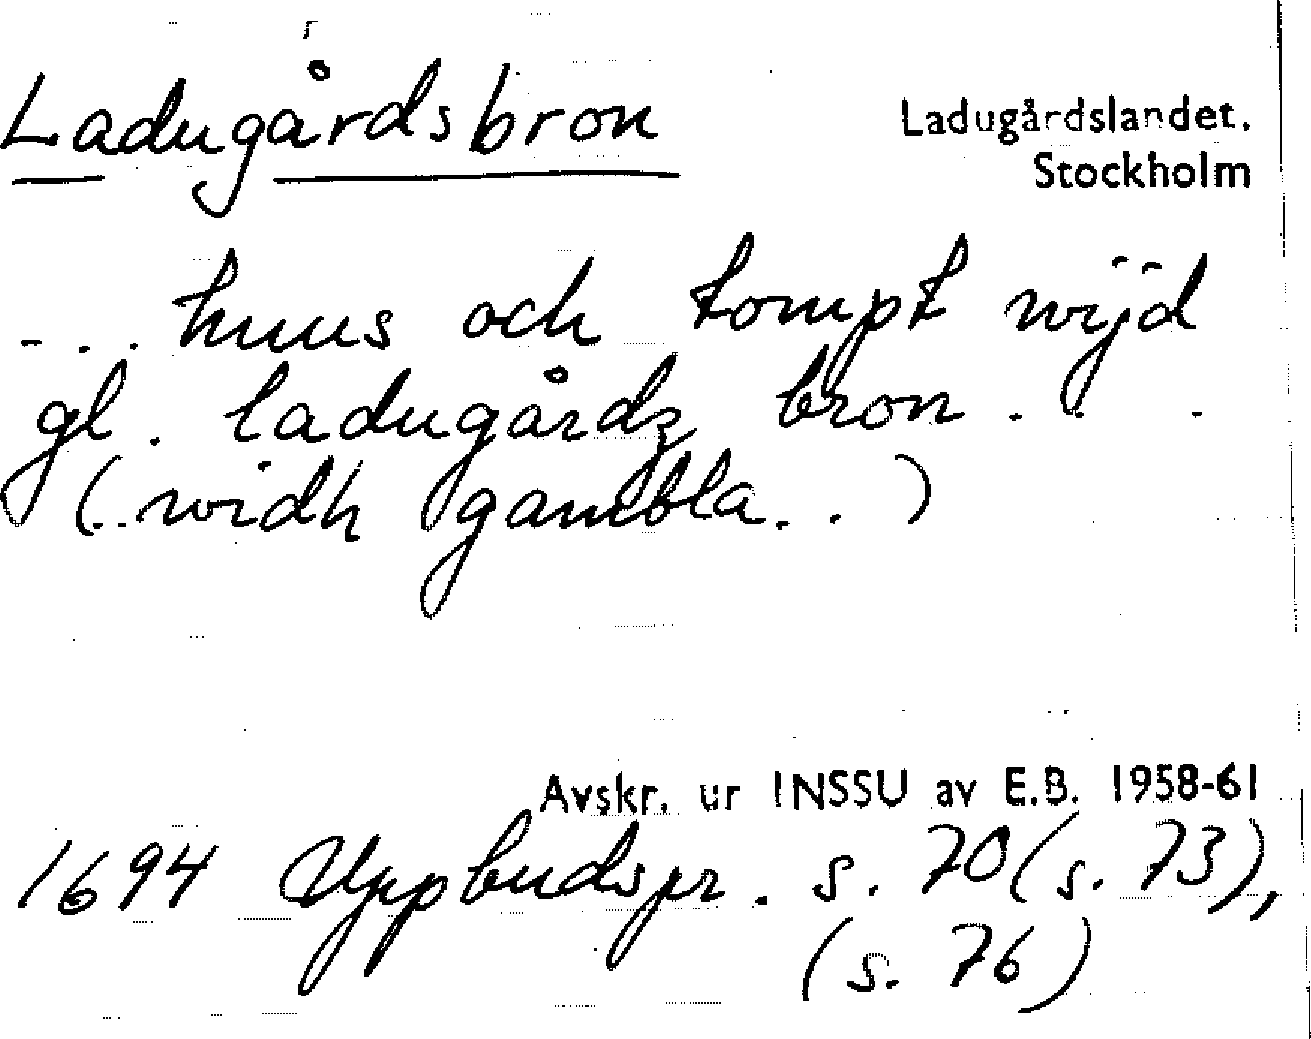 Ladugårdsbron
Ladugårdslandet.
Stockholm
... huus och tompt wijd
gl. ladugårdz bron...
(..widh gambla..)
Avskr. ur INSSU av E.B. 1958-61
1694 Uppbudspr. s. 70 (s. 73),
(s. 76)